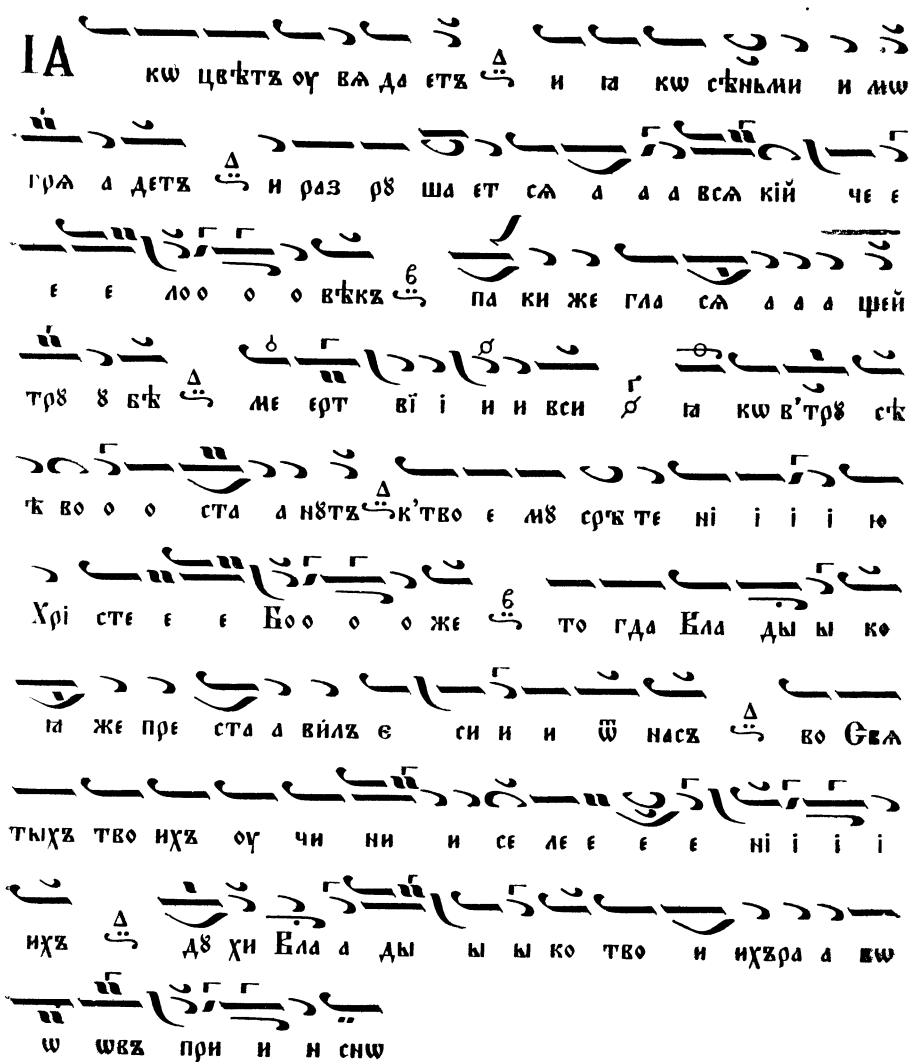 ІА кѡ цвѣтъ оу вѧ да етъ Δ и ꙗ кѡ сѣньми и мѡ
грѧ а детъ Δ и раз рꙋ ша ет сѧ а а а всѧ кїй че е
е е ло о о о вѣкъ в па ки же гла сѧ а а а щей
трꙋ ꙋ бѣ Δ ме ерт вї і и и вси г ꙗ кѡ в'трꙋ сѣ
ѣ во о о ста а нꙋтъ Δ к'тво е мꙋ срѣ те ні і і і ю
Хрі сте е е Бо о о о же в то гда Вла ды ы ко
ꙗ же пре ста а ви́лъ є си и и ѿ насъ Δ во Свѧ
тыхъ тво ихъ оу чи ни и се ле е е е е ні і і і
ихъ Δ дꙋ хи Вла а ды ы ы ко тво и ихъ ра а вѡ
ѡ ѡвъ при и н снѡ